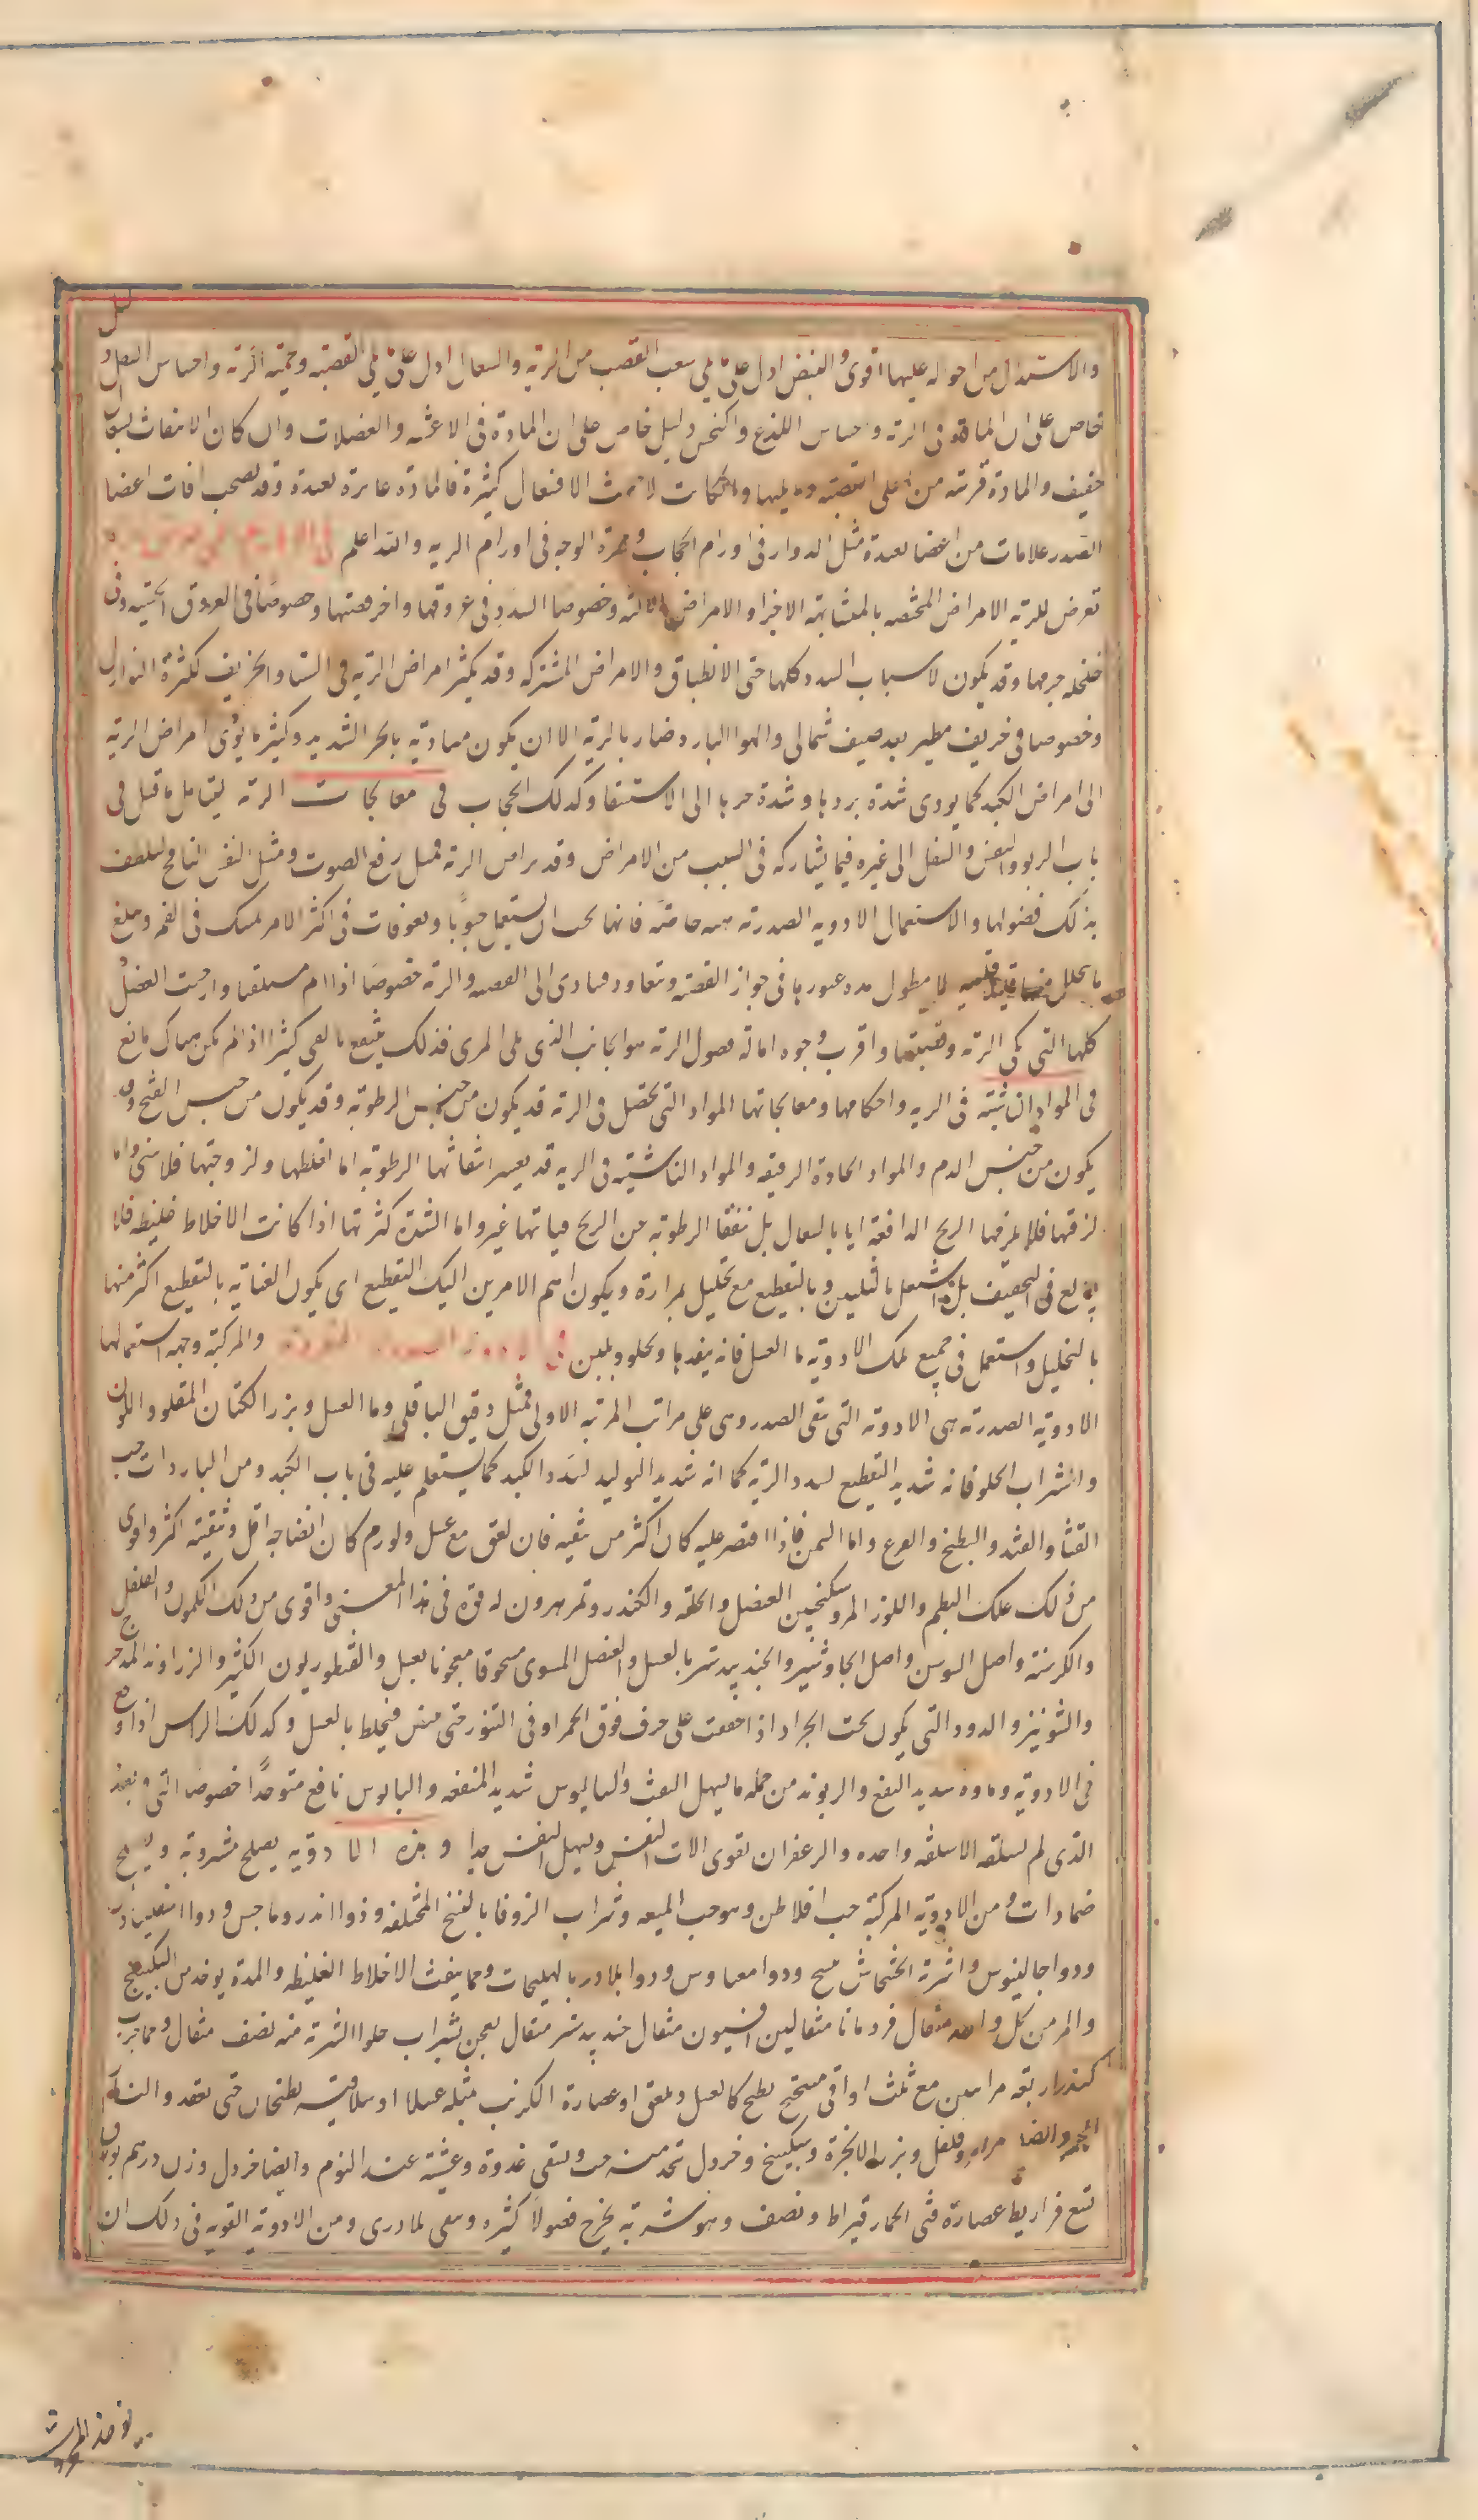 والاستدلال من احواله عليها اقوى والنبض ادل على ما يلى شعب القصب من الرية والسعال ادل على ما يلى القصبة ولحمية الرية واحساس الثقل دليل
خاص على ان المادة فى الرية واحساس اللذع والنخس دليل خاص على ان المادة فى الاغشية والعضلات وان كان الانتفاث بسعال
خفيف والمادة قريبة من اعلى القصبة وما يليها وان كانت لا تنفث الا فعال كثيرة فالمادة غايرة بعيدة وقد يصحب افات اعضا
الصدر علامات من اعضا بعيدة مثل الدوار فى اورام الحجاب وحمرة الوجه فى اورام الرية والله اعلم
تعرض للرية الامراض المختصه بالمتشابهة الاجزا والامراض الالية وخصوصا السدد فى عروقها واجزا قصبتها وخصوصا فى العروق الخشنة وفى
خلخلة جرمها وقد يكون لاسباب السدد كلها حتى الانطباق والامراض المشتركه وقد يكثر امراض الرية فى الشتا والخريف لكثرة النوازل
وخصوصا فى خريف مطير بعد صيف شمالى والهوا البارد ضار بالرية الا ان يكون متاذية بالحر الشديد وكثيرا ما يؤدى امراض الرية
الى امراض الكبد كما يودى شدة بردها وشدة حرها الى الاستسقا وكذلك الحجاب فى معالجات الرية ليتامل ما قيل فى
باب الربو والتنفس والنقل الى غيره فيما يشاركه فى السبب من الامراض وقد يراض الرية بمثل رفع الصوت ومثل النفس النافخ ليلطف
بذلك فضولها والاستعمال الادوية الصدرية هيه خاصة فانها يحب ان يستعمل حبوبا ولعوقات فى اكثر الامر يمسك فى الفم ويبلع
ما يتحلل منها قليلا قليلا لا يطول مدة عبورها فى جواز القصبة وتعاود فيتادى الى القصبه والرية خصوصا اذا نام مستلقيا وارخيت العضل
كلها التى على الرية وقصبتها واقرب وجوه امالة فصول الرية هو الجانب الذى يلى المرى فلذلك ينتفع بالقى كثيرا اذا لم يكن هناك مانع
فى المواد الناشبة فى الرية واحكامها ومعالجاتها المواد التى تحصل فى الرية قد يكون من جنس الرطوبة وقد يكون من جنس القيح وقد
يكون من جنس الدم والمواد الحادة الرقيقه والمواد الناشبة فى الرية قد يعسر انتفاثها الرطوبة اما لغلظها ولزوجتها فلا ينفى واما
لرقتها فلا يلزمها الريح الدافعة اياها بالسعال بل تتفقا الرطوبة عن الريح فيباتها غير واما لشدة كثرتها اذا كانت الاخلاط غليظه فلا
يبالغ فى التجفيف بل اشتغل بالتليين وبالتقطيع مع تحليل بمرارة ويكون اهم الامرين اليك التقطيع اى يكون العناية بالتقطيع اكثر منها
بالتحليل واستعمل فى جميع تلك الادوية ما العسل فانه ينفذها ويجلو ويلين فى الادوية الصدرية المفردة والمركبة وجهه استعمالها
الادوية الصدرية هى الادوية التى تنقى الصدر وهى على مراتب المرتبة الاولى فمثل دقيق الباقلى وما العسل وبزر الكتان المقلو واللوز
والشراب الحلو فانه شديد التقطيع لسدد الرية كما انه شديد التوليد لسدد الكبد كما يستعلم عليه فى باب الكبد ومن الباردات حب
القثا والقثد والبطيخ والقرع واما السمن فاذا اقتصر عليه كان اكثر من تنقيه فان لعق مع عسل ولوز مر كان انضاجه اقل وتنقيته اكثر واقوى
من ذلك علك البطم واللوز المر وسكنجبين العنصل والحلبة والكندر وتمر هيرون له قوة فى هذا المعنى واقوى من ذلك الكمون والفلفل
والكرسنة واصل السوسن واصل الجاوشير والجندبيدستر بالعسل والعنصل المشوى مسحوقا معجونا بعسل والقنطوريون الكبير والزراوند المدحرج
والشونيز والدود التى يكون تحت الجرار اذا جففت على خزف فوق الجمر او فى التنور حتى يبيض فيخلط بالعسل وكذلك الراسن اذا وقع
فى الادوية وماؤه شديد النفع والريوند من جملة ما يسهل النفث والساليوس شديد المنفعه والبلبوس نافع متوحدا خصوصا النى وبعده
الذى لم يسلقه الا سلقه واحده والزعفران يقوى الات النفس ويسهل النفس جدا وهذه الادوية يصلح مشروبة ويصلح
ضمادات ومن الادوية المركبة حب افلاطن وهو حب الميعه وشراب الزوفا بالنسخ المختلفه ودوا اندروماخس ودوا
ودوا جالينوس واشربة الخشخاش ودوا ودوا البلادر بالهليجات ومما ينفث الاخلاط الغليظه والمدة يوخذ من السكبينج
والمر من كل واحد مثقال قردمانا مثقالين افيون مثقال جندبيدستر مثقال يعجن بشراب حلو الشربة منه نصف مثقال ومما جرب
كندر اربعه مر اثنين مع ثلث اواقى ميبختج يطبخ كالعسل ويلعق او عصارة الكرنب بمثله عسلا او سلاقته يطبخان حتى يعقد والنار
الجمر وايضا مر وفلفل وبزر الانجرة وسكبينج وخردل يتخذ منه حب ويسقى غدوة وعشية عند النوم وايضا خردل وزن درهم بورق
تسع قراريط عصارة قثى الحمار قيراط ونصف وهو شربة يخرج فضولا كثيره وينقى بلا اذى ومن الادوية القويه فى ذلك ان
يوخذ